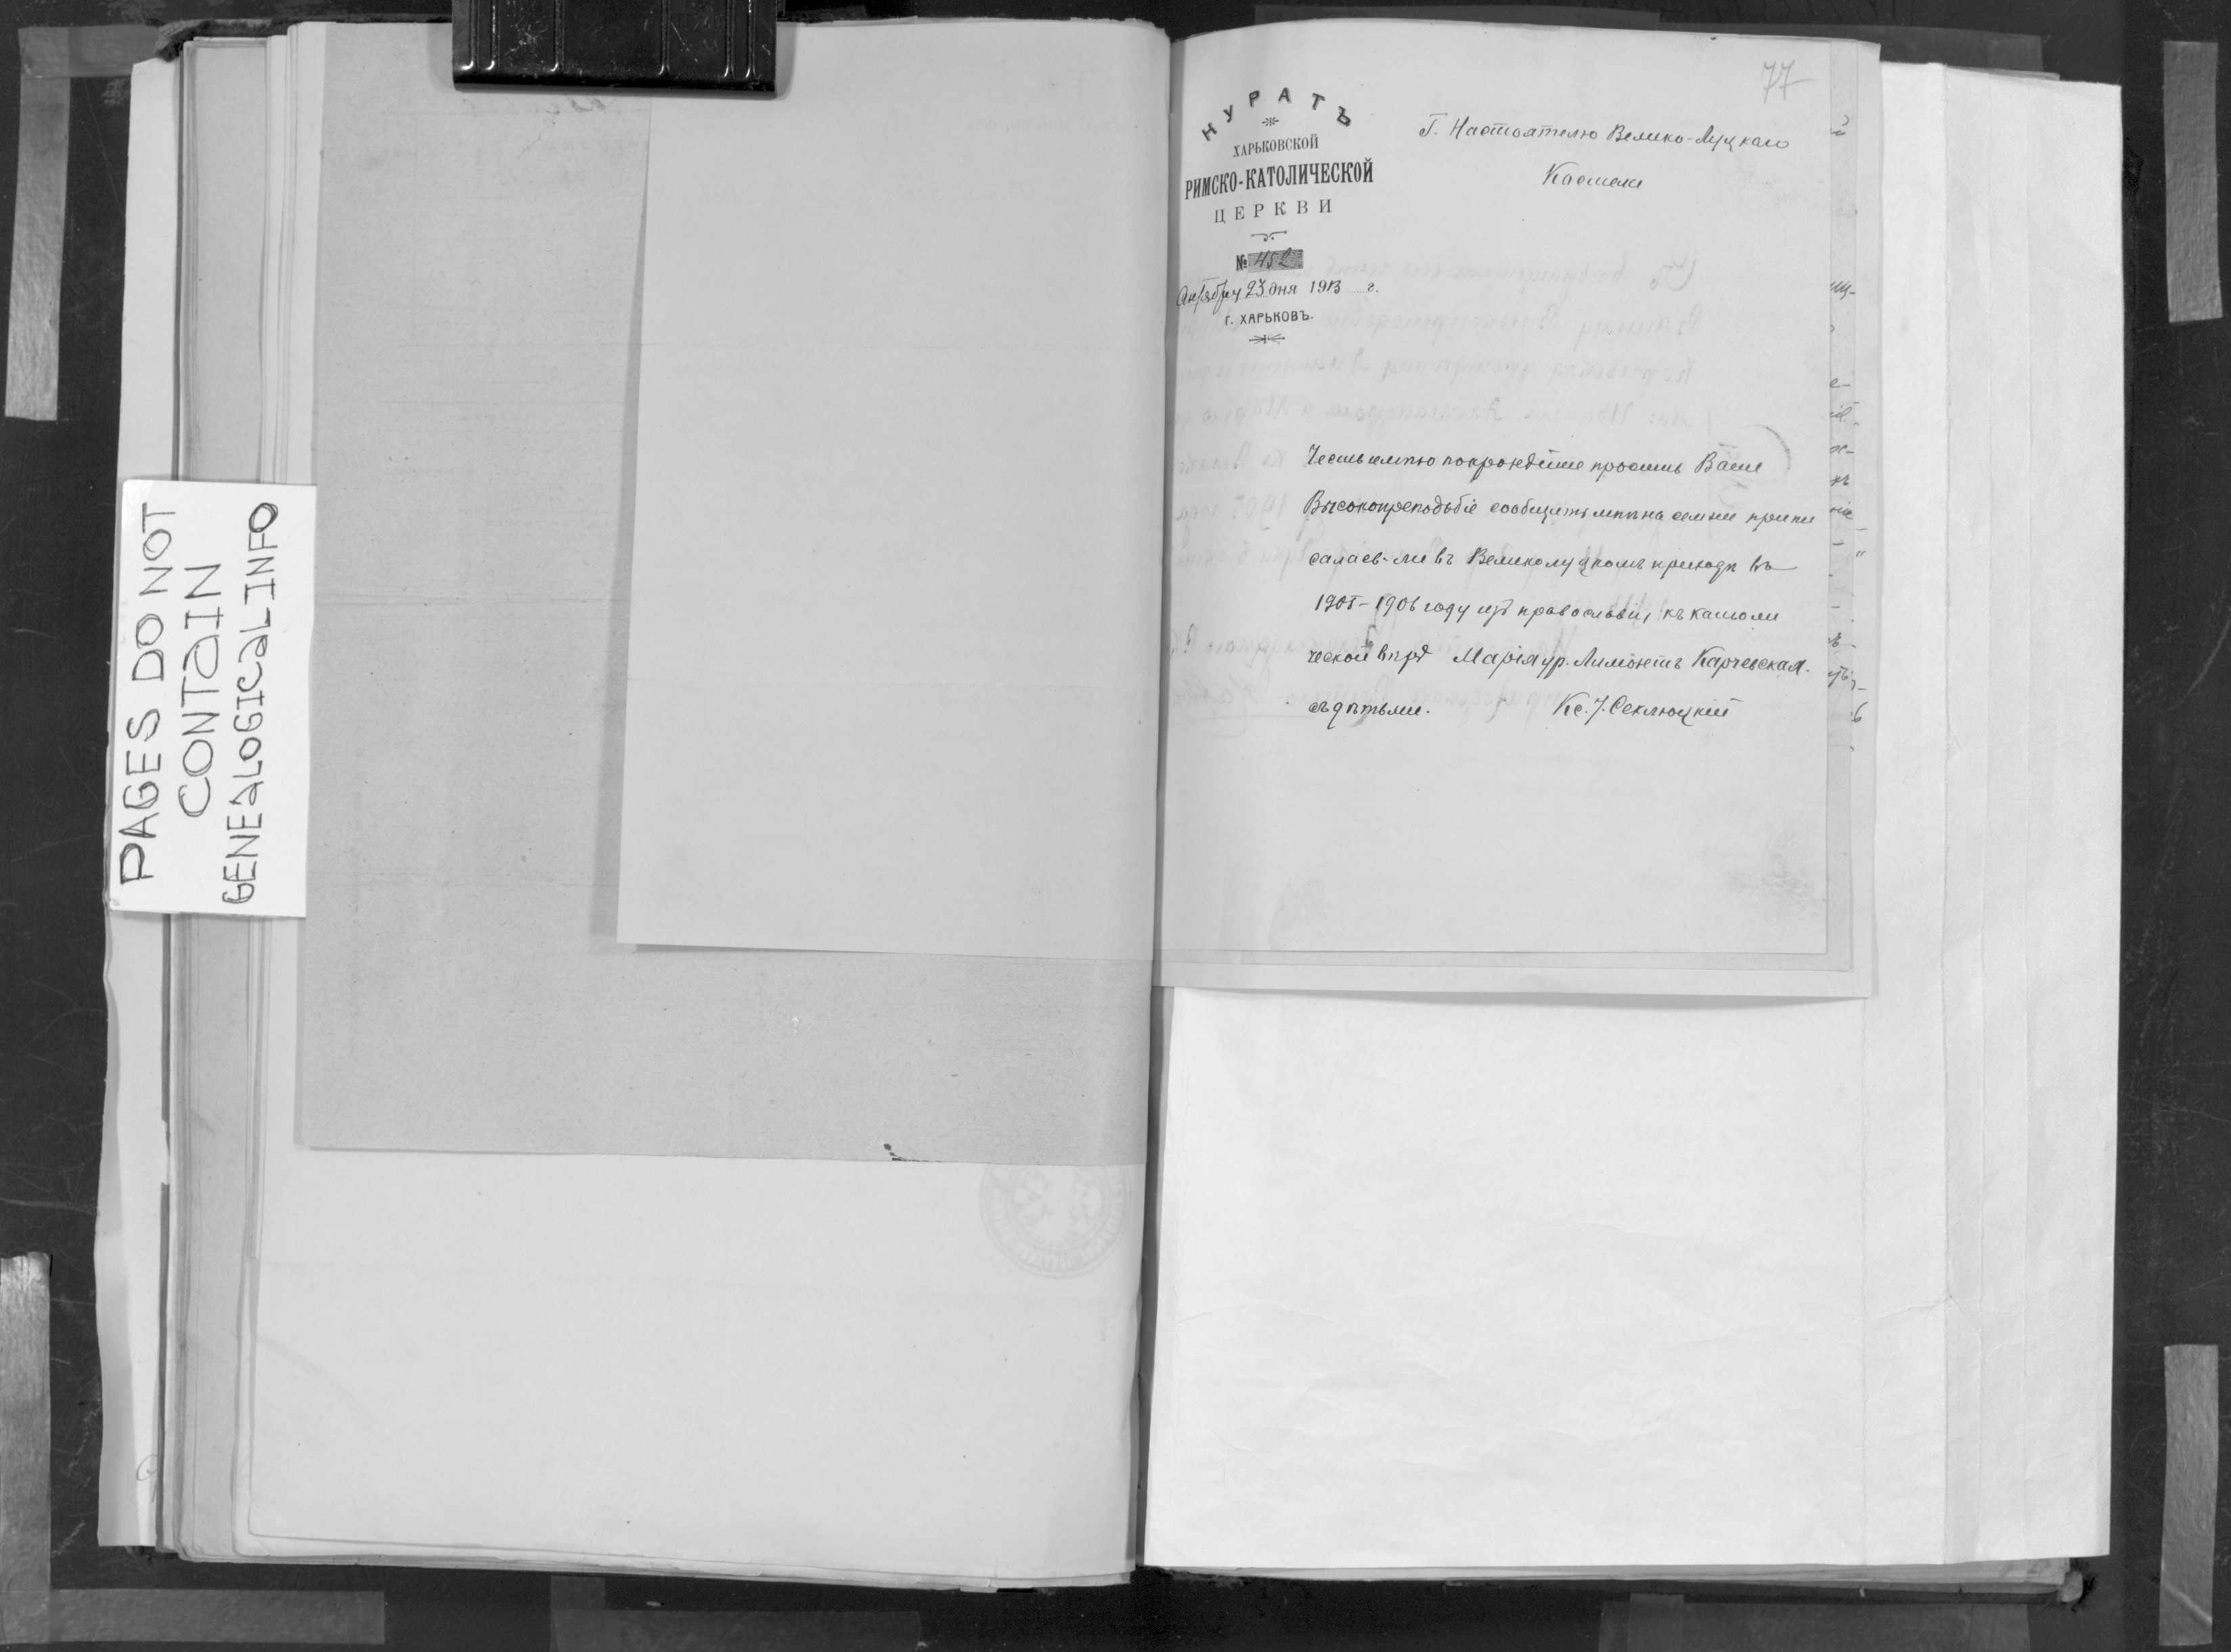 PAGES DO NOT
CONTAIN
GENEALOGICAL INFO
77
КУРАТЪ
ХАРЬКОВСКОЙ
РИМСКО-КАТОЛИЧЕСКОЙ
ЦЕРКВИ
№ 452
Октября 23 дня 1913 г.
г. ХАРЬКОВЪ.
Г. Настоятелю Велико-Луцкаго
Костела
Честь имѣю покорнѣйше просить Ваше
Высокопреподобіе сообщить мнѣ на семъ припи
салась-ли въ Великолуцкомъ приходѣ въ
1905-1906 году изъ православія къ католи
ческой вѣрѣ Марія ур. Лимонтъ Карчевская.
съ дѣтьми. Кс. J. Секлюцкій